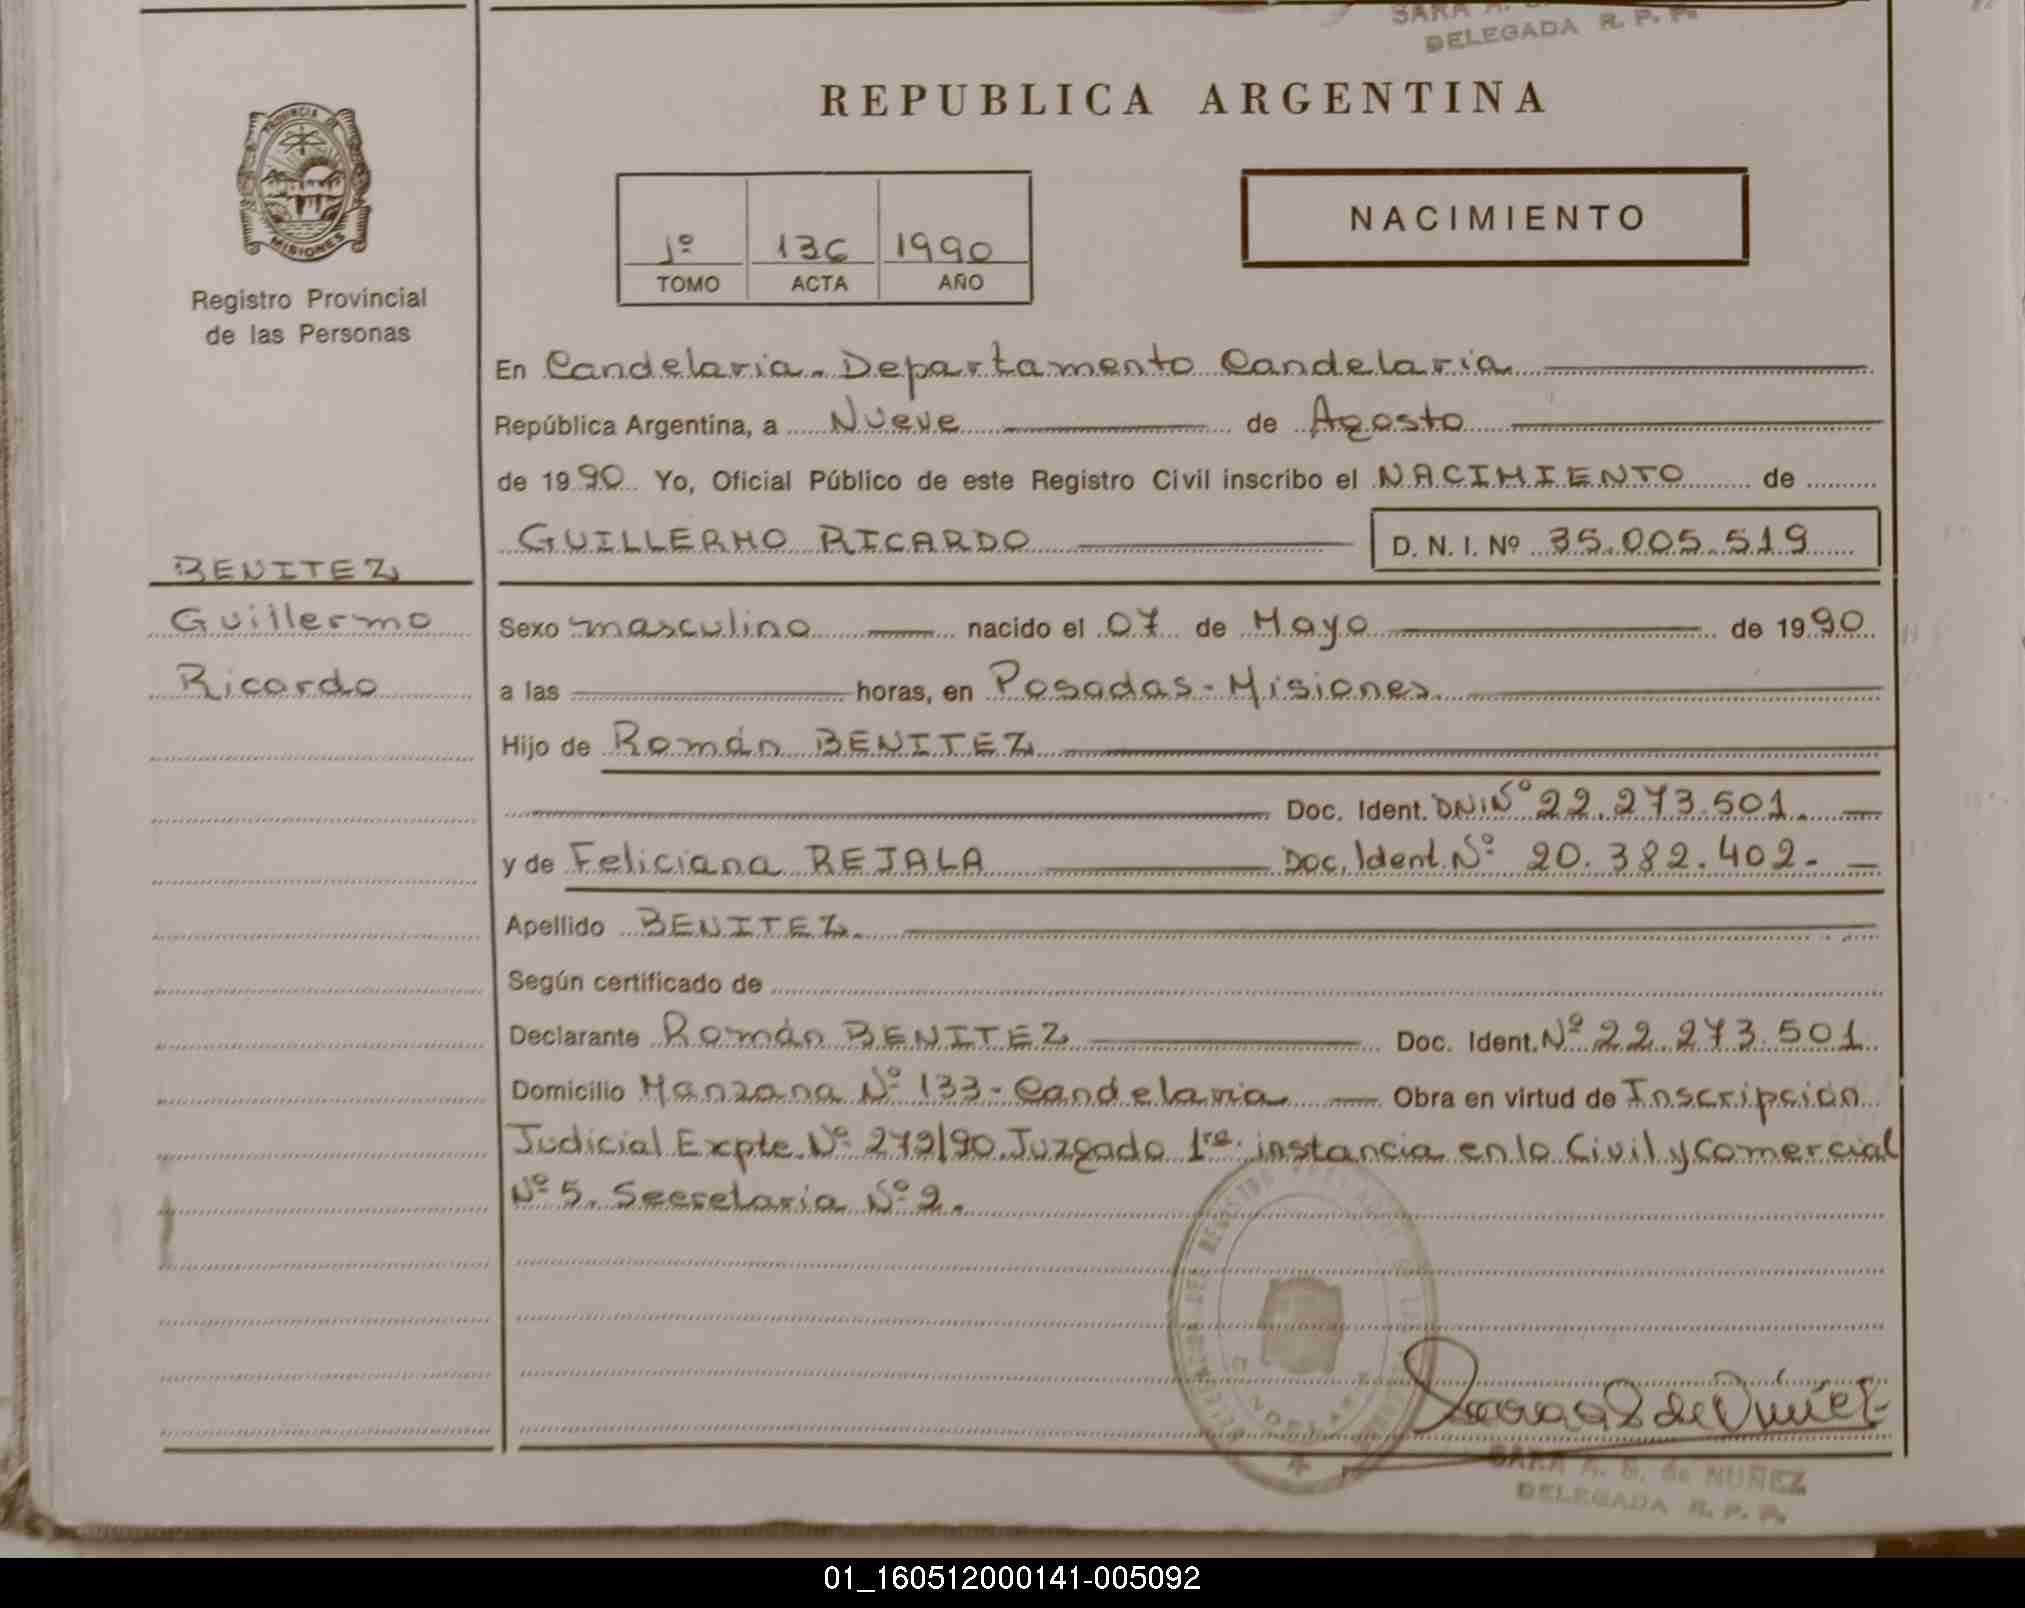 DELEGADA R. P. P.
REPUBLICA ARGENTINA
PROVINCIA DE
MISIONES
Registro Provincial
de las Personas
1º 136 1990
TOMO ACTA AÑO
NACIMIENTO
En Candelaria. Departamento Candelaria
República Argentina, a Nueve de Agosto
de 1990 Yo, Oficial Público de este Registro Civil inscribo el NACIMIENTO de
GUILLERMO RICARDO D. N. I. Nº 35.005.519
BENITEZ
Guillermo
Ricardo
Sexo masculino nacido el 07 de Mayo de 1990
a las horas, en Posadas - Misiones
Hijo de Román BENITEZ
Doc. Ident. DNI Nº 22.273.501.
y de Feliciana REJALA Doc. Ident. Nº 20.382.402.
Apellido BENITEZ.
Según certificado de
Declarante Román BENITEZ Doc. Ident. Nº 22.273.501
Domicilio Manzana Nº 133 - Candelaria Obra en virtud de Inscripción
Judicial Expte. Nº 279/90. Juzgado 1ra. instancia en lo Civil y Comercial
Nº 5. Secretaria Nº 2.
SARA A. S. de NUÑEZ
DELEGADA R. P. P.
01_160512000141-005092